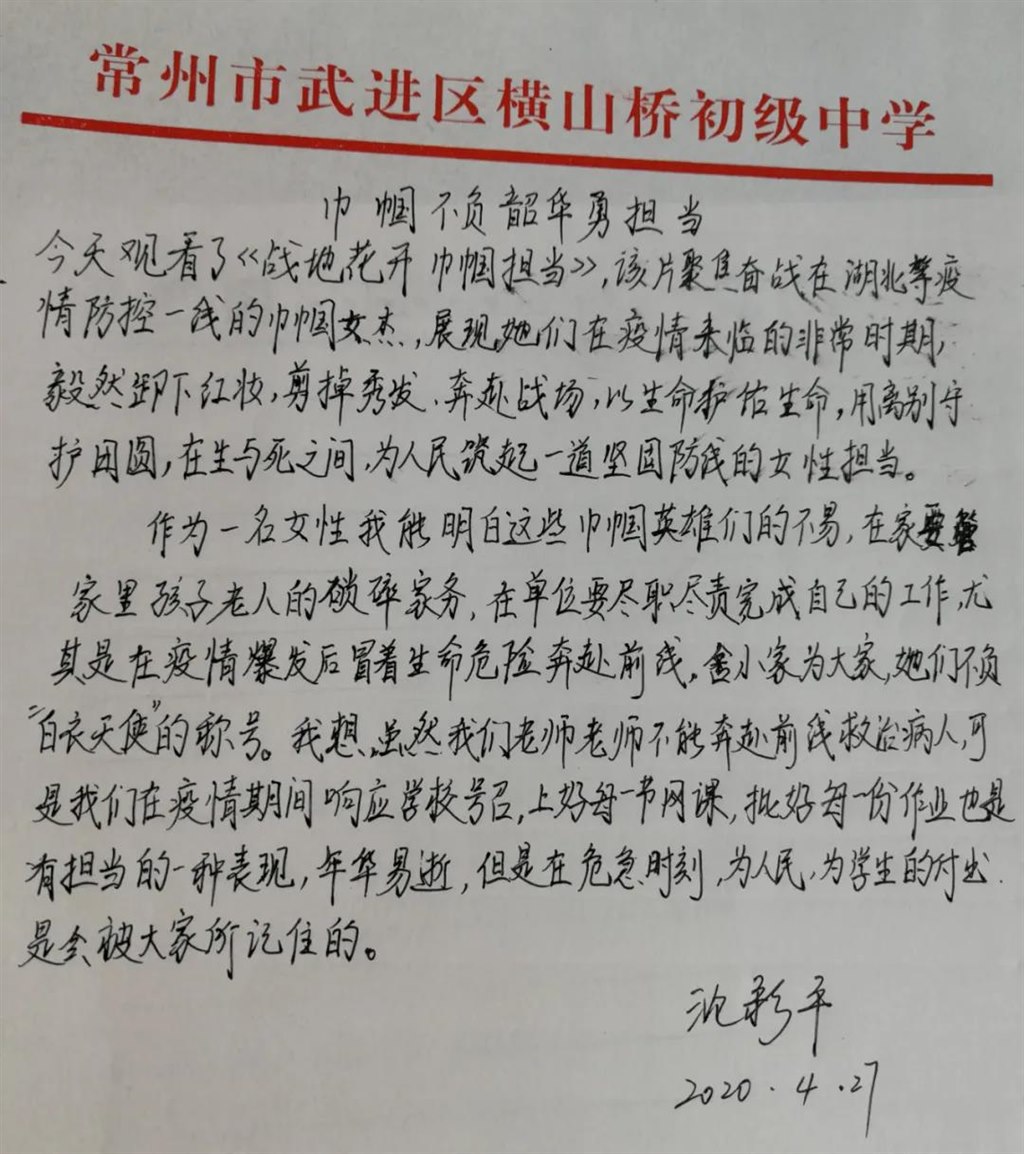 常州市武进区横山桥初级中学
巾帼不负韶华勇担当
今天观看了《战地花开 巾帼担当》,该片聚焦奋战在湖北等疫
情防控一线的巾帼女杰,展现她们在疫情来临的非常时期,
毅然卸下红妆,剪掉秀发、奔赴战场,以生命护佑生命,用离别守
护团圆,在生与死之间,为人民筑起一道坚固防线的女性担当。
作为一名女性我能明白这些巾帼英雄们的不易,在家要管
家里孩子老人的锁碎家务,在单位要尽职尽责完成自己的工作,尤
其是在疫情爆发后冒着生命危险奔赴前线,舍小家为大家,她们不负
“白衣天使”的称号。我想,虽然我们老师老师不能奔赴前线救治病人,可
是我们在疫情期间响应学校号召,上好每一节网课,批好每一份作业也是
有担当的一种表现,年华易逝,但是在危急时刻,为人民,为学生的付出
是会被大家所记住的。
沈彩平
2020.4.27